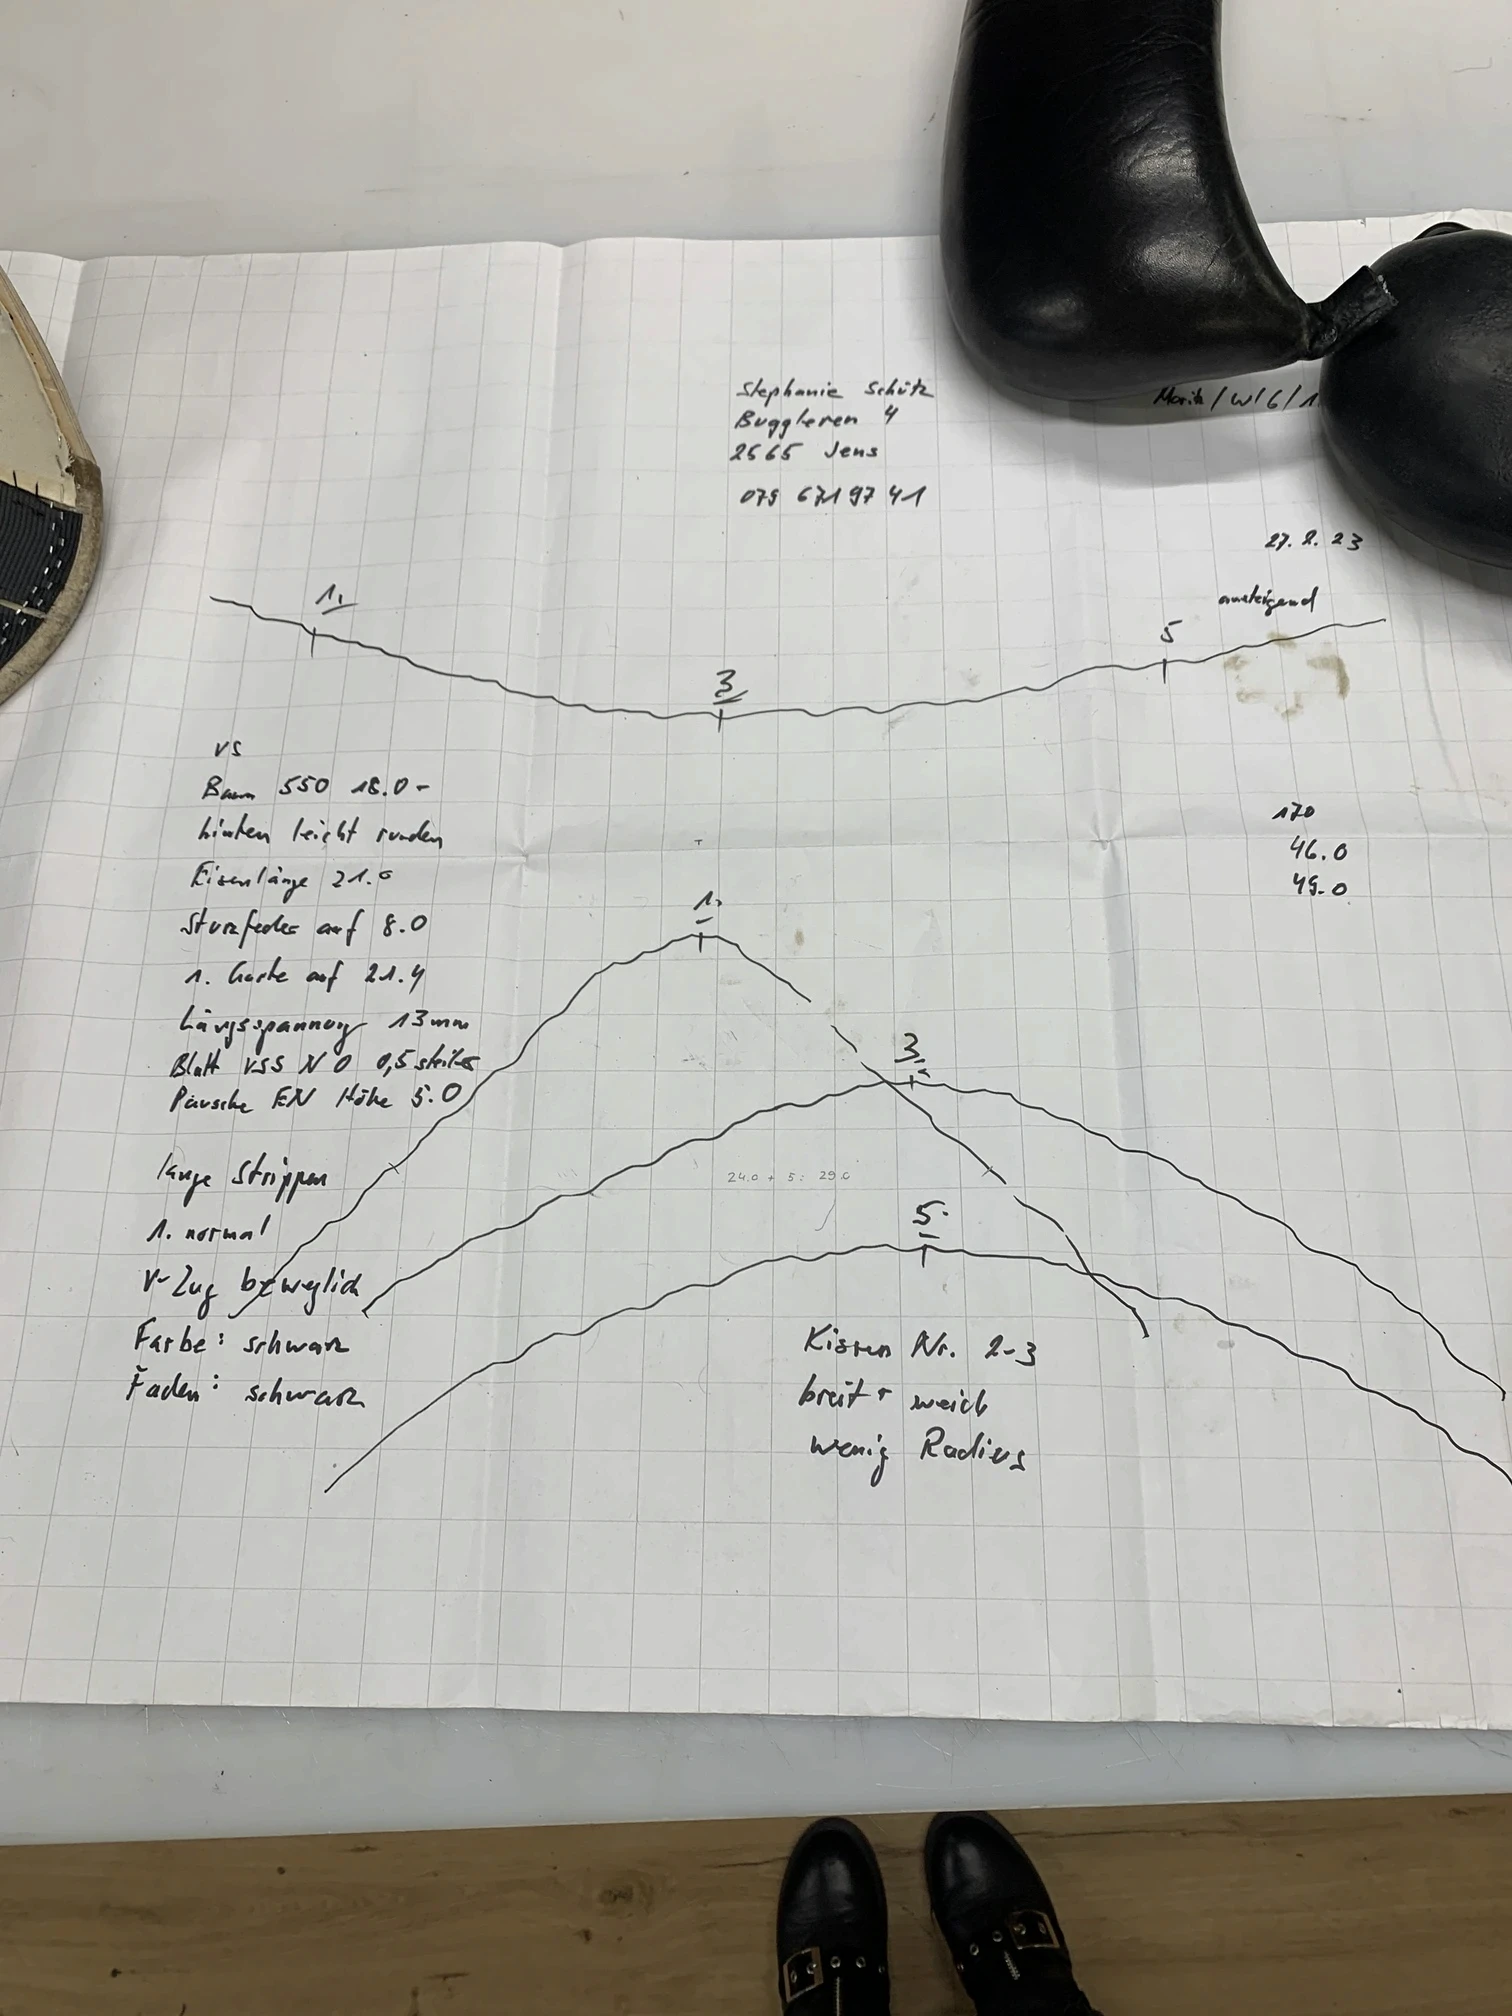 Stephanie Schütz
Buggleren 4
2565 Jens
079 671 97 41
Moritz / W / 6 / 1
27. 2. 23
ansteigend
1.
3
5
VS
Baum 550 18.0 -
hinten leicht runden
Eisenlänge 21.0
Sturzfeder auf 8.0
1. Gurte auf 21.4
Längsspannung 13mm
Blatt VSS N 0 0,5 steiler
Pausche EN Höhe 5.0
lange Strippen
1. normal
V-Zug beweglich
Farbe: schwarz
Faden: schwarz
170
46.0
49.0
1.
3.
24.0 + 5: 29.0
5.
Kissen Nr. 2-3
breit + weich
wenig Radius